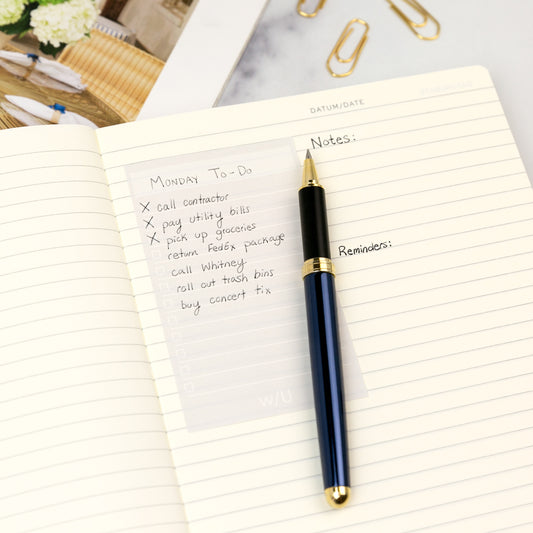 DATUM/DATE
Notes:
MONDAY TO-DO
X call contractor
X pay utility bills
X pick up groceries
return FedEx package
call Whitney
roll out trash bins
buy concert tix
Reminders:
W/U